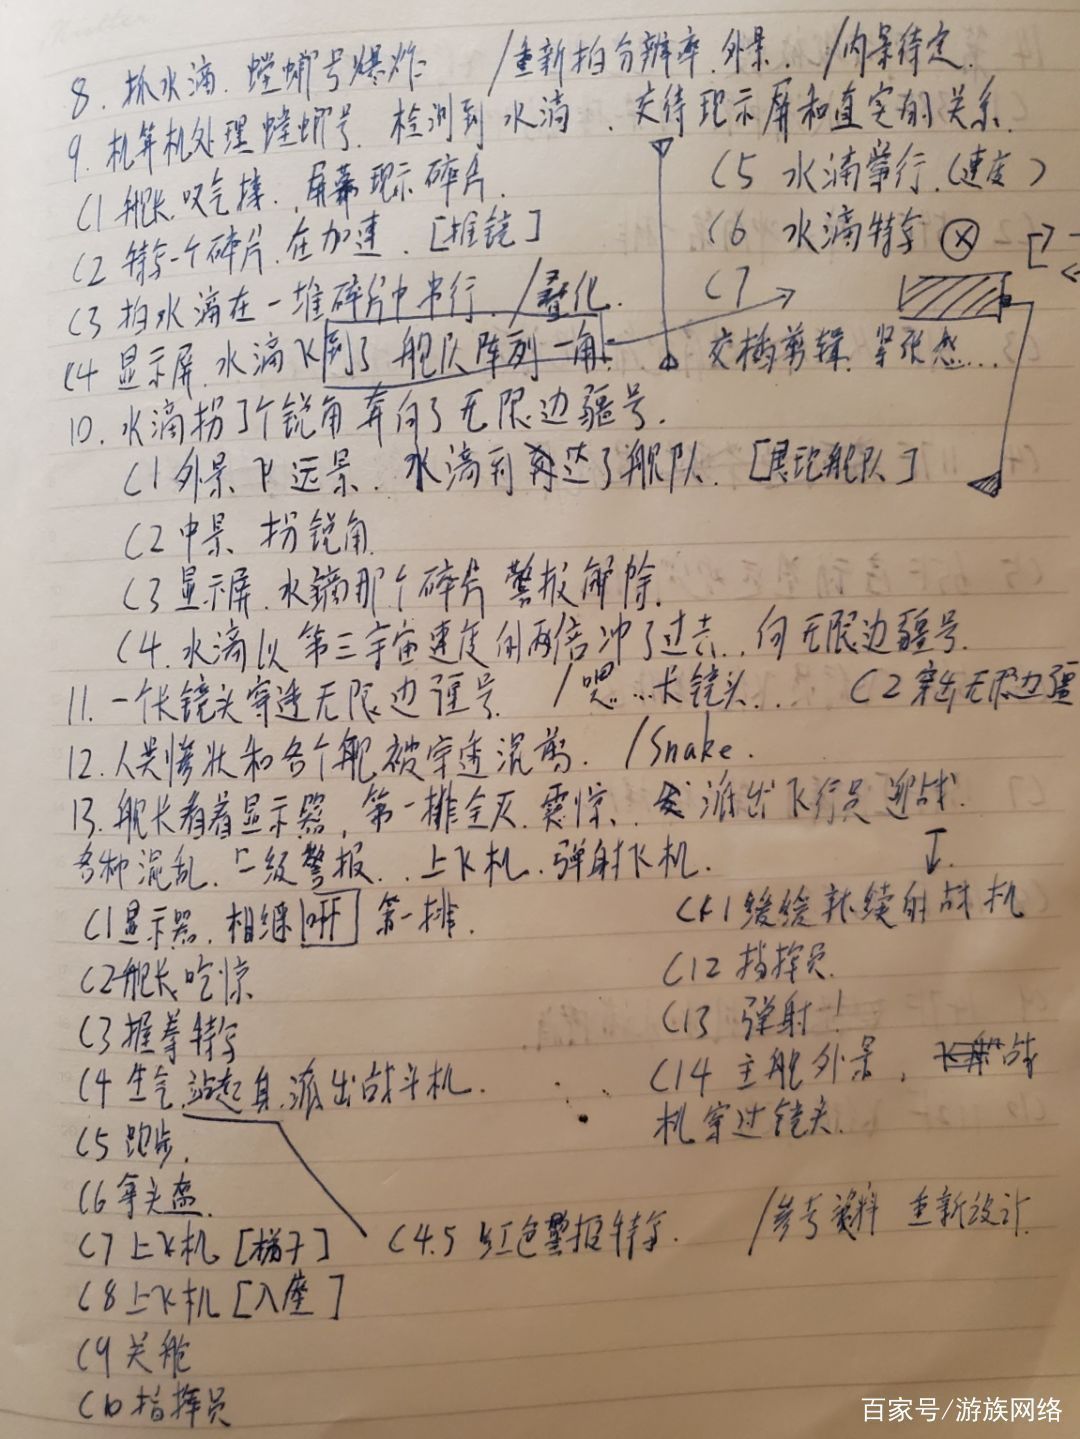 8. 抓水滴. 螳螂号爆炸 /重新拍分辨率.外景. /内景待定.
9. 机算机处理螳螂号. 检测到水滴. 交待现示屏和真实的关系.
C1 舰长.叹气揉. 屏幕现示碎片.
C5 水滴掌行.(速度)
C2 特写一个碎片.在加速. [推镜]
C6 水滴特写
C3 拍水滴在一堆碎片中串行. /叠化.
C7
C4 显示屏.水滴飞到了舰队阵列一角.
交插剪辑.紧张感...
10. 水滴拐了个锐角奔向了无限边疆号.
C1 外景 远景. 水滴到达了舰队. [具现舰队]
C2 中景. 拐锐角.
C3 显示屏.水滴那个碎片警报解除.
C4. 水滴以第三宇宙速度的两倍冲了过去..向无限边疆号.
11. 一个长镜头穿透无限边疆号. /嗯...长镜头... C2 穿出无限边疆
12. 人类惨状和各个舰被穿透混剪. /Snake.
13. 舰长看着显示器,第一排全灭.震惊. 派出飞行员迎战.
各种混乱.二级警报..上飞机.弹射飞机.
C1 显示器.相继 第一排.
C2 舰长吃惊
C3 握拳特写
C4 生气.站起身.派出战斗机.
C5 跑步.
C6 拿头盔.
C7 上飞机[梯子]
C4.5 红色警报特写. /参考资料 重新设计.
C8 上飞机[入座]
C9 关舱
C10 指挥员
C11 缓缓 续 战机
C12 指挥员.
C13 弹射!
C14 主舰外景, 战
机穿过镜头.
百家号/游族网络